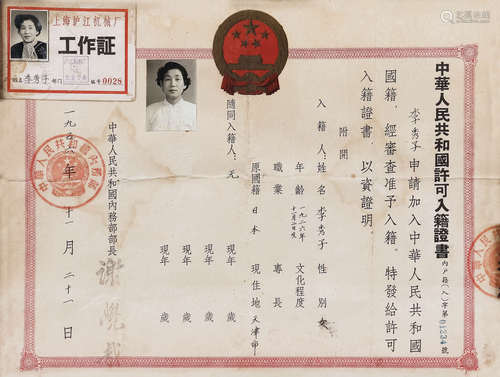 上海沪江机械厂
工作証
姓名 李秀子 部门 编号 0028
中華人民共和國許可入籍證書
內戶籍(入)字第01334號
李秀子申請加入中華人民共和國
國籍,經審查准予入籍。特發給許可
入籍證書,以資證明。
附開:
入籍人:姓名 李秀子 性別 女
年齡 一九二六年十月二日生 文化程度
職業 專長
原國籍 日本 現住地 天津市
隨同入籍人:无 現年 歲
現年 歲
現年 歲
中華人民共和國內務部部長
謝覺哉
一九五 年 十一月 二十一日
中華人民共和國內務部